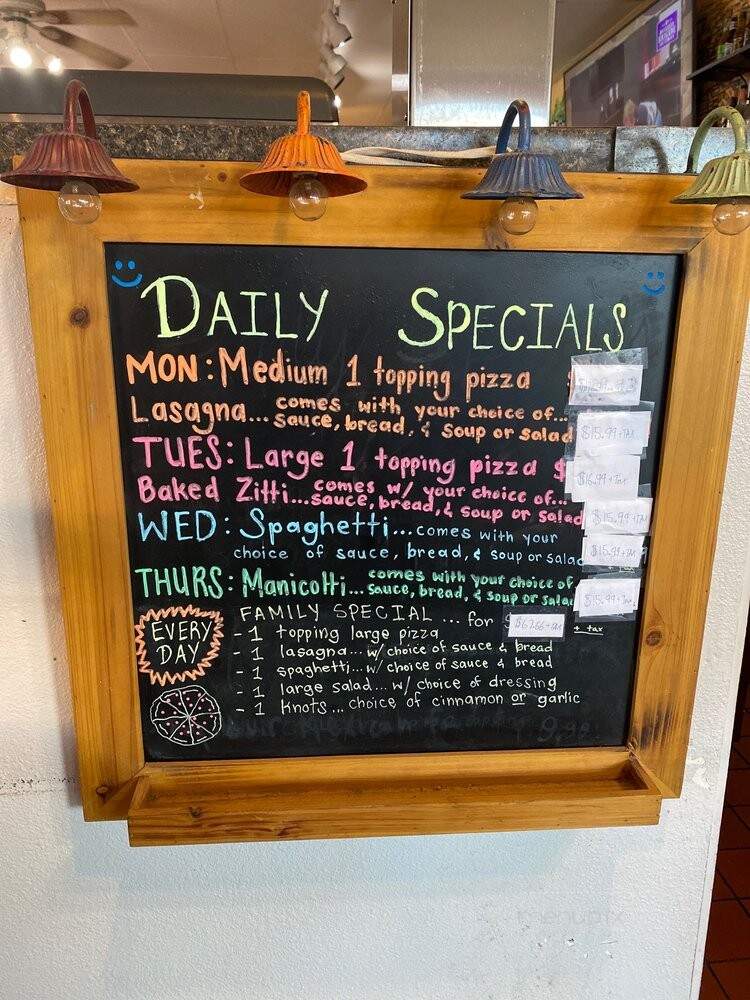 DAILY SPECIALS
MON: Medium 1 topping pizza $
Lasagna... comes with your choice of...
sauce, bread, & soup or salad $15.99+TAX
TUES: Large 1 topping pizza $ $16.99+Tax
Baked Zitti... comes w/ your choice of...
sauce, bread, & soup or salad $15.99+TAX
WED: Spaghetti... comes with your
choice of sauce, bread, & soup or salad $15.99+TAX
THURS: Manicotti... comes with your choice of
sauce, bread, & soup or salad $15.99+Tax
EVERY
DAY
FAMILY SPECIAL ... for $67.66+TAX + tax
- 1 topping large pizza
- 1 lasagna... w/ choice of sauce & bread
- 1 spaghetti... w/ choice of sauce & bread
- 1 large salad... w/ choice of dressing
- 1 knots... choice of cinnamon or garlic
9.99
menupix